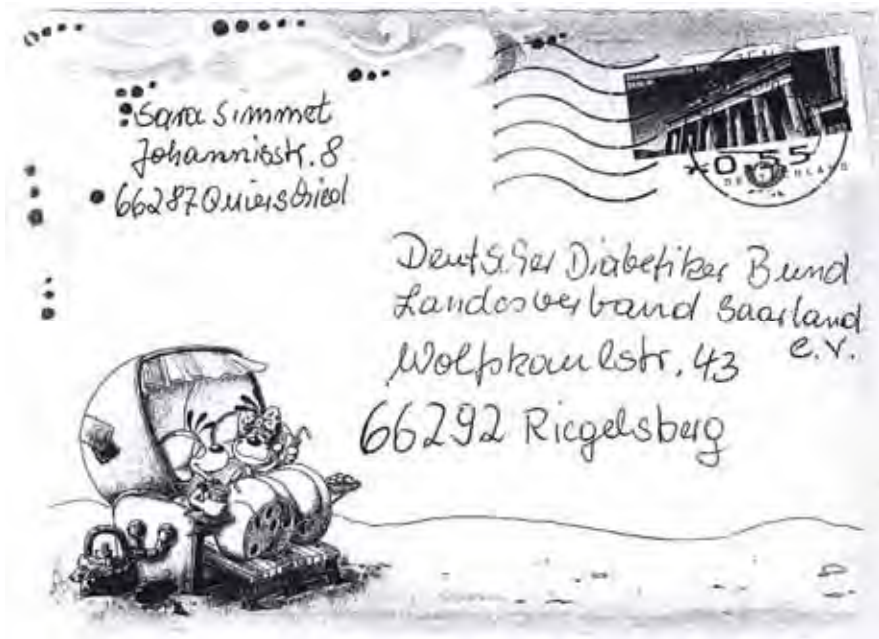 Sara Simmet
Johannisstr. 8
66287 Quierschied
0,55
DEUTSCHLAND
Deutscher Diabetiker Bund
Landesverband Saarland
e.V.
Wolfskaulstr. 43
66292 Riegelsberg